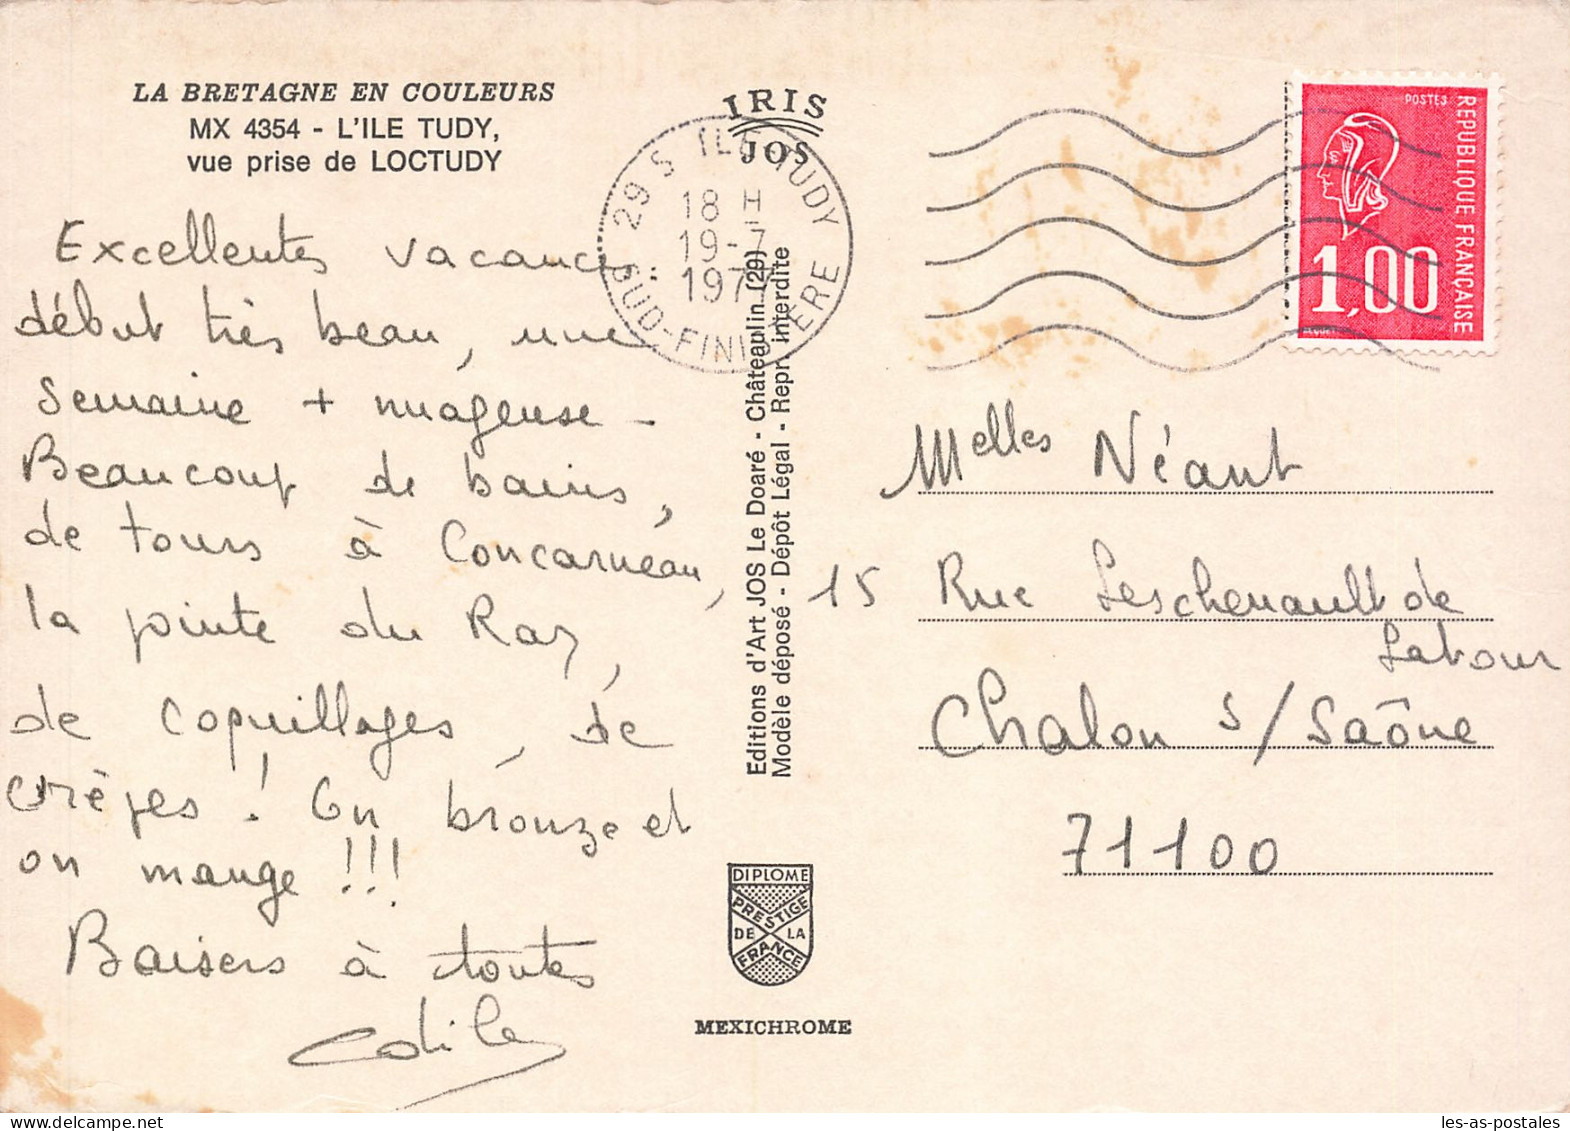 LA BRETAGNE EN COULEURS
MX 4354 - L'ILE TUDY,
vue prise de LOCTUDY
Excellentes vacances
début très beau, une
semaine + nuageuse -
Beaucoup de bains,
de tours à Concarneau,
la pointe du Raz,
de coquillages, de
crèpes ! On bronze et
on mange !!!
Baisers à toutes
Odile
IRIS
JOS
29 S ILE TUDY
18 H
19-7
197
SUD-FINISTERE
Editions d'Art JOS Le Doaré - Châteaulin (29)
Modèle déposé - Dépôt Légal - Repr. interdite
DIPLOME
PRESTIGE
DE LA
FRANCE
MEXICHROME
POSTES
REPUBLIQUE FRANÇAISE
1,00
BEQUET
Melles Néant
15 Rue Leschenault de
Latour
Chalon s/Saône
71100
les-as-postales